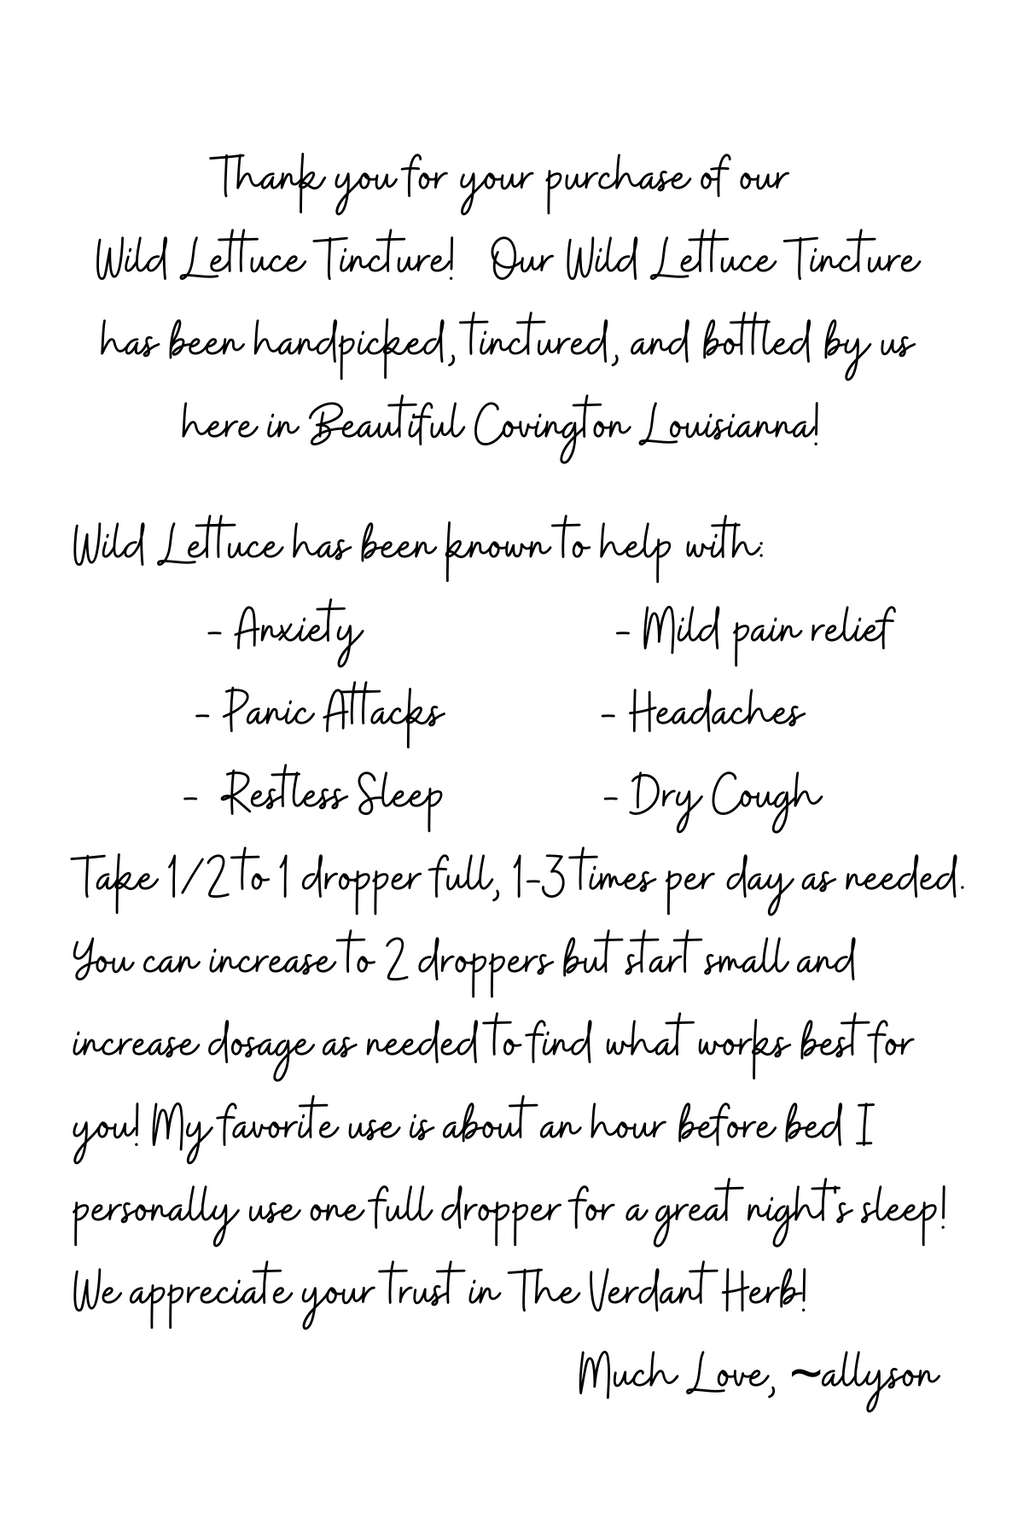 Thank you for your purchase of our
Wild Lettuce Tincture! Our Wild Lettuce Tincture
has been handpicked, tinctured, and bottled by us
here in Beautiful Covington Louisianna!
Wild Lettuce has been known to help with:
- Anxiety - Mild pain relief
- Panic Attacks - Headaches
- Restless Sleep - Dry Cough
Take 1/2 to 1 dropper full, 1-3 times per day as needed.
You can increase to 2 droppers but start small and
increase dosage as needed to find what works best for
you! My favorite use is about an hour before bed I
personally use one full dropper for a great night's sleep!
We appreciate your trust in The Verdant Herb!
Much Love, ~allyson